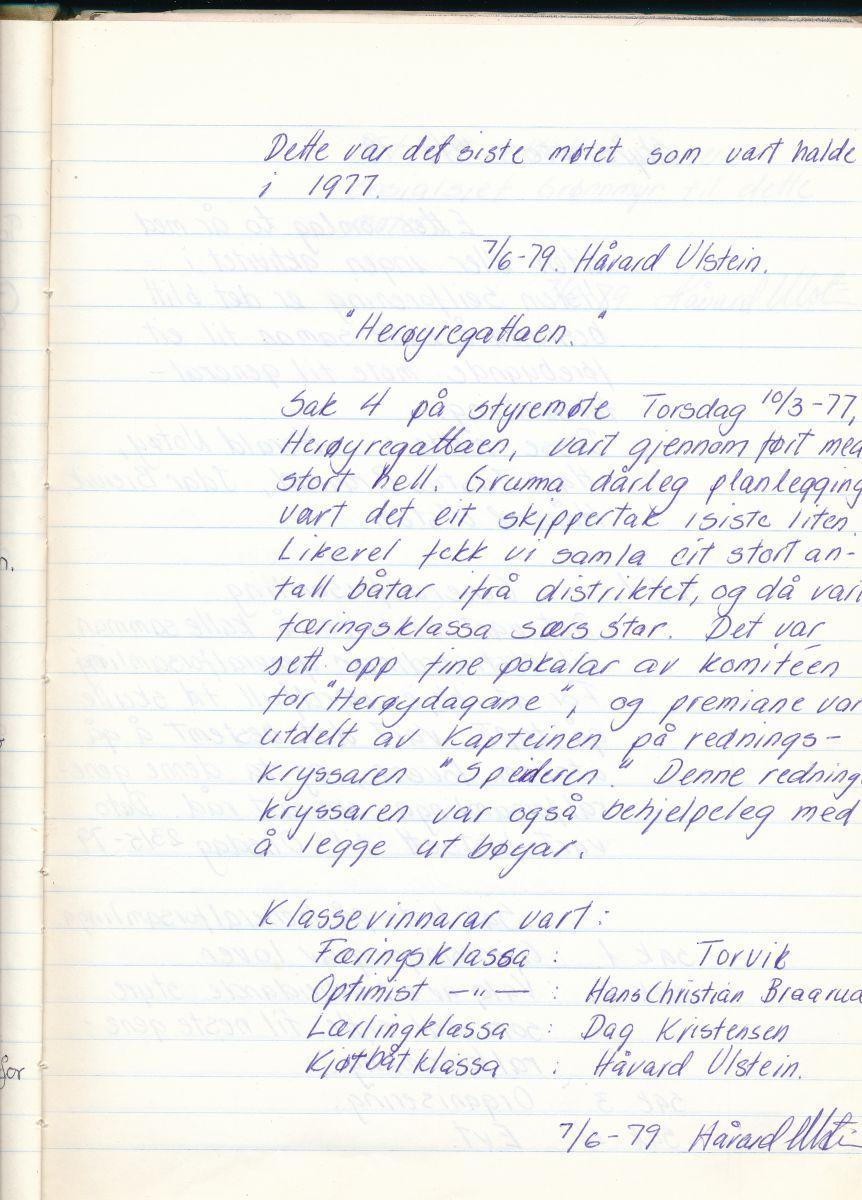 Dette var det siste møtet som vart halde
i 1977.
7/6-79. Håvard Ulstein.
"Herøyregattaen."
Sak 4 på styremøte Torsdag 10/3-77,
Herøyregattaen, vart gjennom ført med
stort hell. Grunna dårleg planlegging
vart det eit skippertak i siste liten.
Likevel fekk vi samla eit stort an-
tall båtar ifrå distriktet, og då vart
færingsklassa særs stor. Det var
sett opp fine pokalar av komitéen
for "Herøydagane", og premiane var
utdelt av Kapteinen på rednings-
kryssaren "Speideren." Denne rednings
kryssaren var også behjelpeleg med
å legge ut bøyar.
Klassevinnarar vart:
Færingsklassa : Torvik
Optimist —"— : Hans Christian Braarud
Lærlingklassa : Dag Kristensen
Kjøtbåtklassa : Håvard Ulstein.
7/6-79 Håvard Ulstein